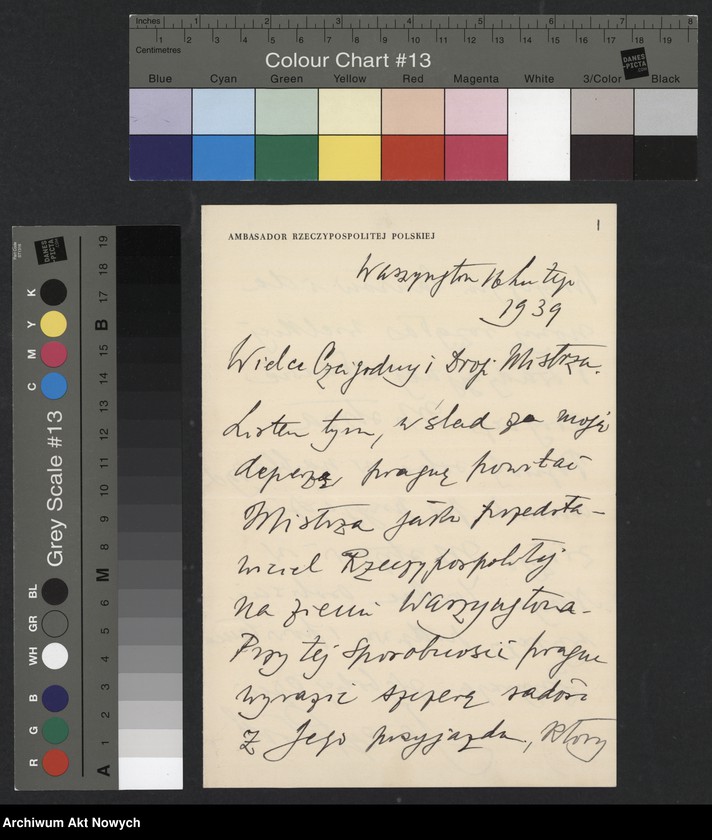 Inches 1 2 3 4 5 6 7 8
Centimetres 1 2 3 4 5 6 7 8 9 10 11 12 13 14 15 16 17 18 19
Colour Chart #13
DANES
PICTA
Blue Cyan Green Yellow Red Magenta White 3/Color Black
Grey Scale #13
DANES
PICTA
C M Y K
R G B WH GR BL
A 1 2 3 4 5 6 M 8 9 10 11 12 13 14 15 B 17 18 19
1
AMBASADOR RZECZYPOSPOLITEJ POLSKIEJ
Waszyngton 16 luty
1939
Wielce Czcigodny i Drogi Mistrzu.
Listem tym, w ślad za moją
depeszą pragnę powitać
Mistrza jako przedsta-
wiciel Rzeczypospolitej
na ziemi Waszyngtona.
Przy tej sposobności pragnę
wyrazić szczerą radość
z Jego przyjazdu, który
Archiwum Akt Nowych